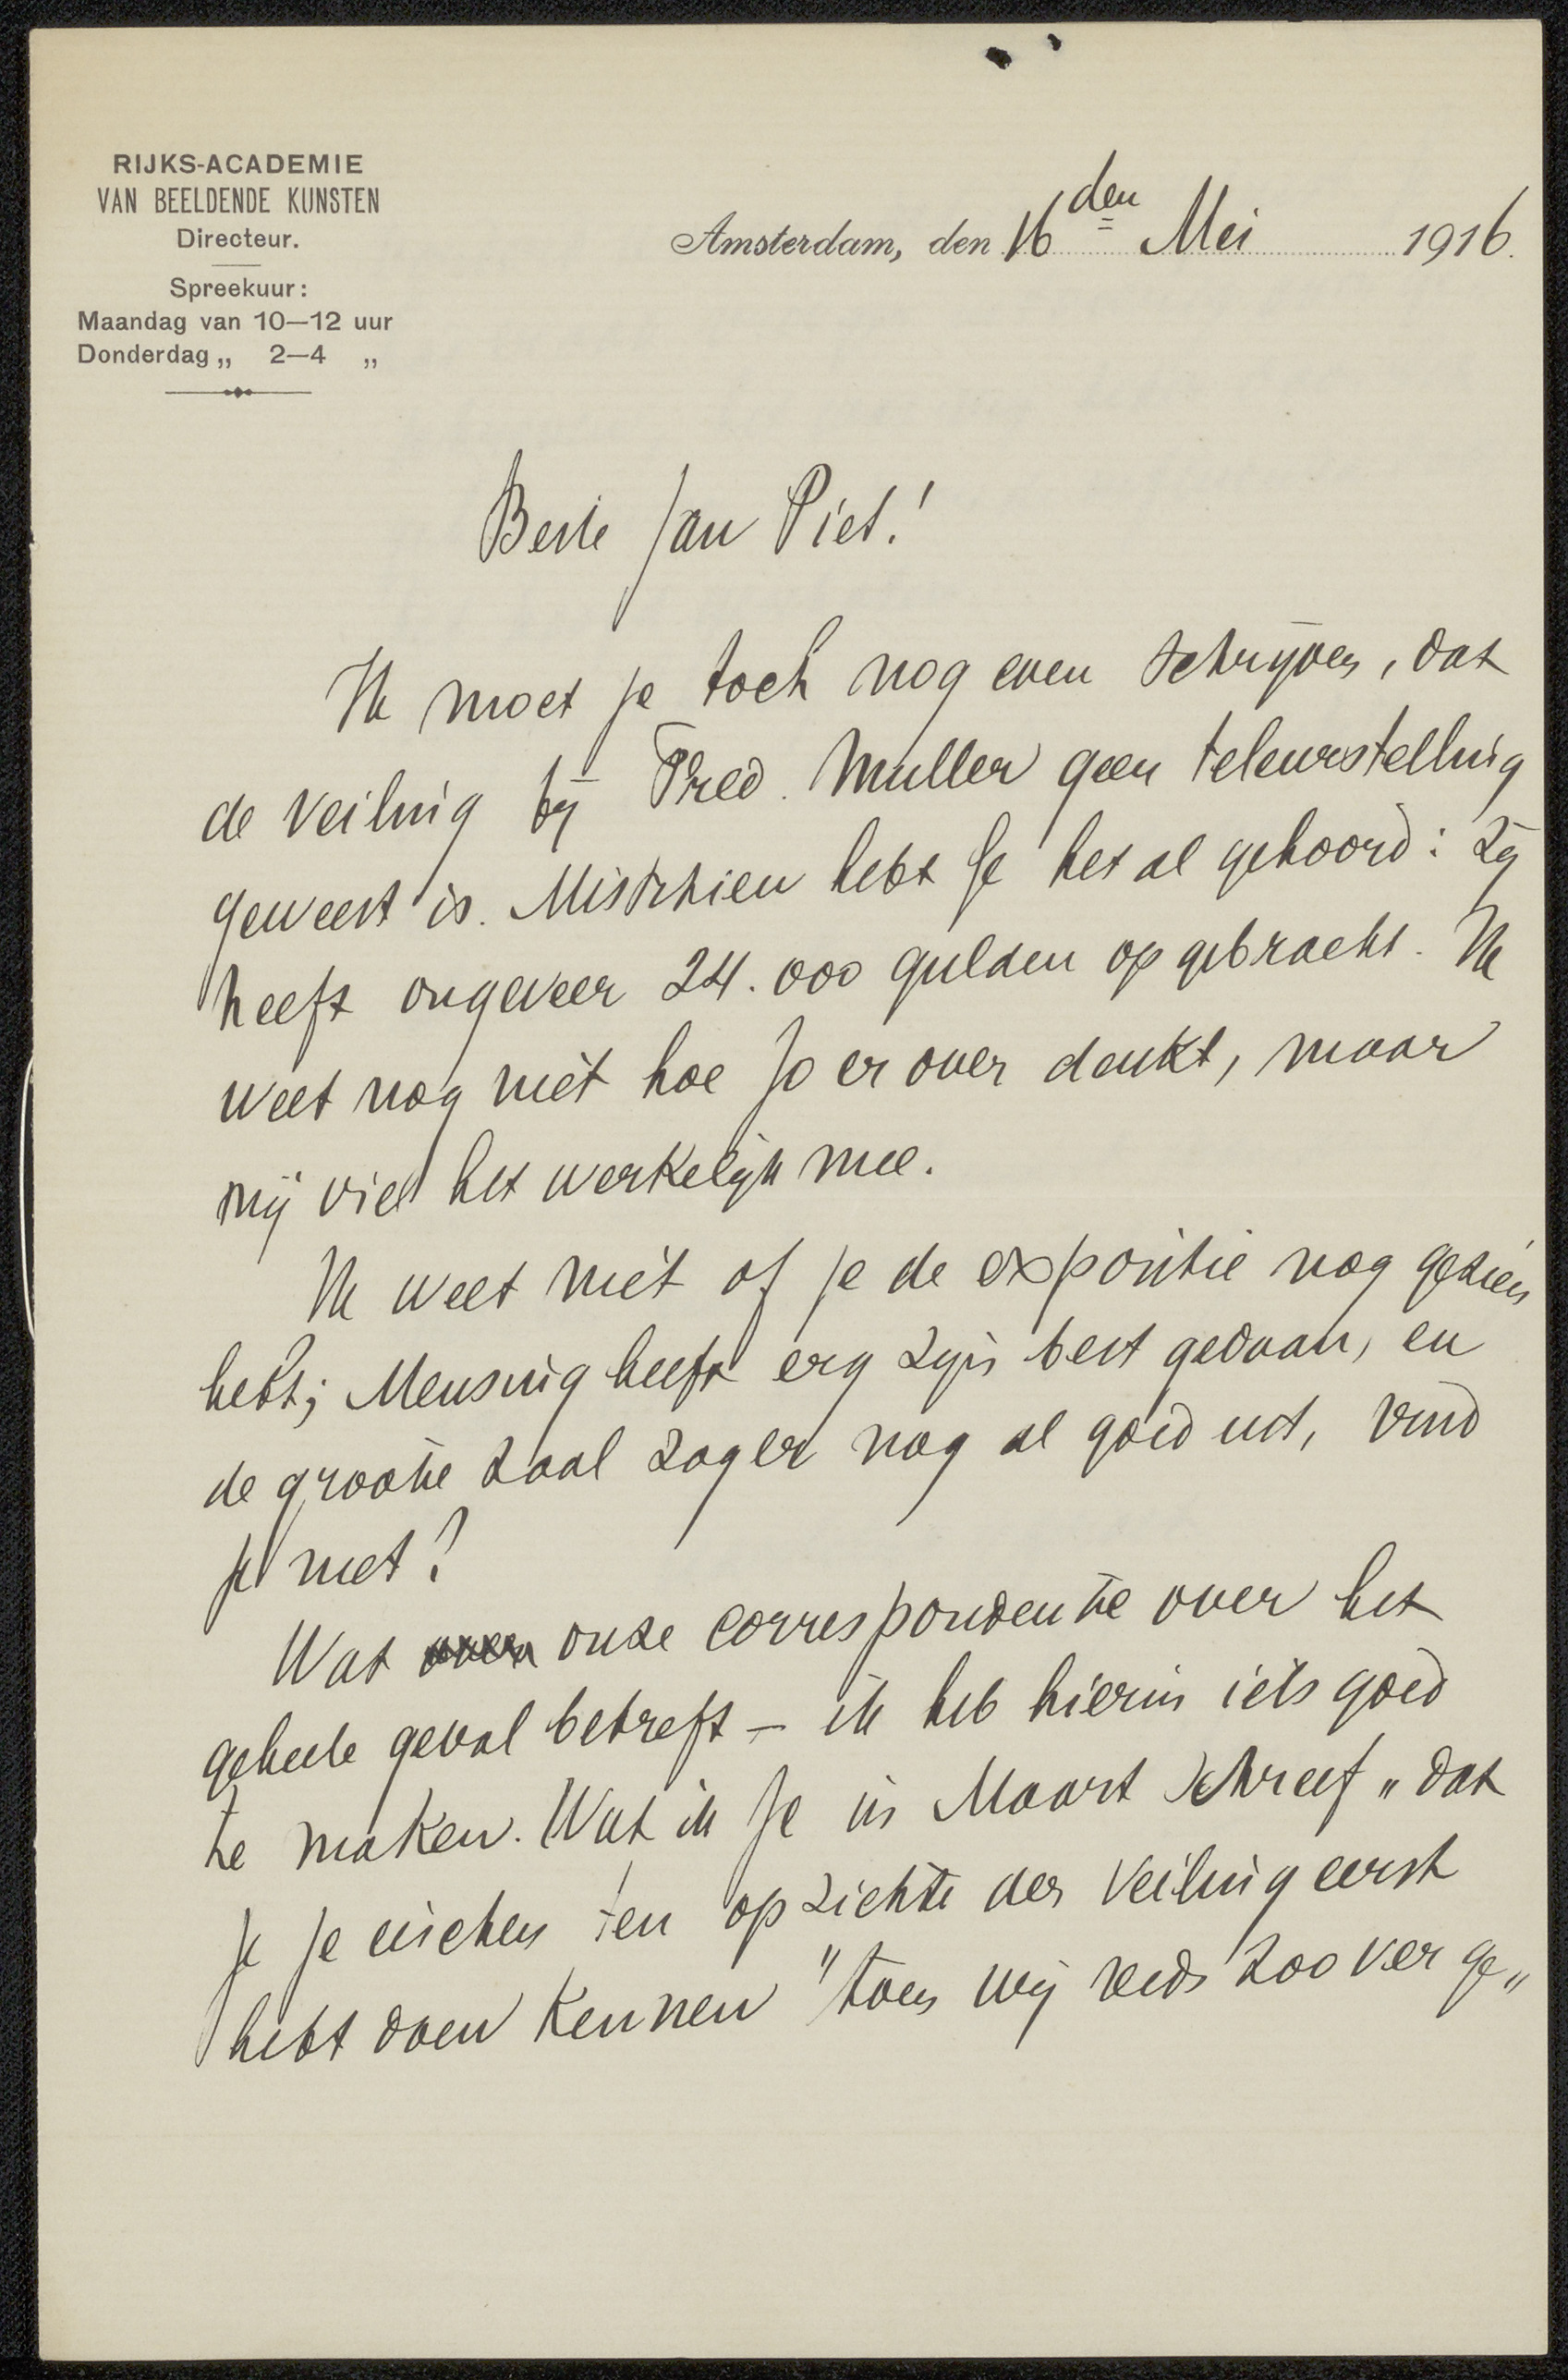 RIJKS-ACADEMIE
VAN BEELDENDE KUNSTEN
Directeur.
Spreekuur:
Maandag van 10—12 uur
Donderdag „ 2—4 „
Amsterdam, den 16den Mei 1916.
Beste Jan Piet!
Ik moet je toch nog even schrijven, dat
de veiling bij Fred. Muller geen teleurstelling
geweest is. Misschien hebt je het al gehoord: zij
heeft ongeveer 24.000 gulden opgebracht. Ik
weet nog niet hoe Jo er over denkt, maar
mij viel het werkelijk mee.
Ik weet niet of je de expositie nog gezien
hebt; Mensing heeft erg zijn best gedaan, en
de groote zaal zag er nog al goed uit, vind
je niet?
Wat over onze correspondentie over het
geheele geval betreft — ik heb hierin iets goed
te maken. Wat ik je in Maart schreef „dat
je je eischen ten opzichte der veiling eerst
hebt doen kennen" toen wij reeds zoo ver ge„